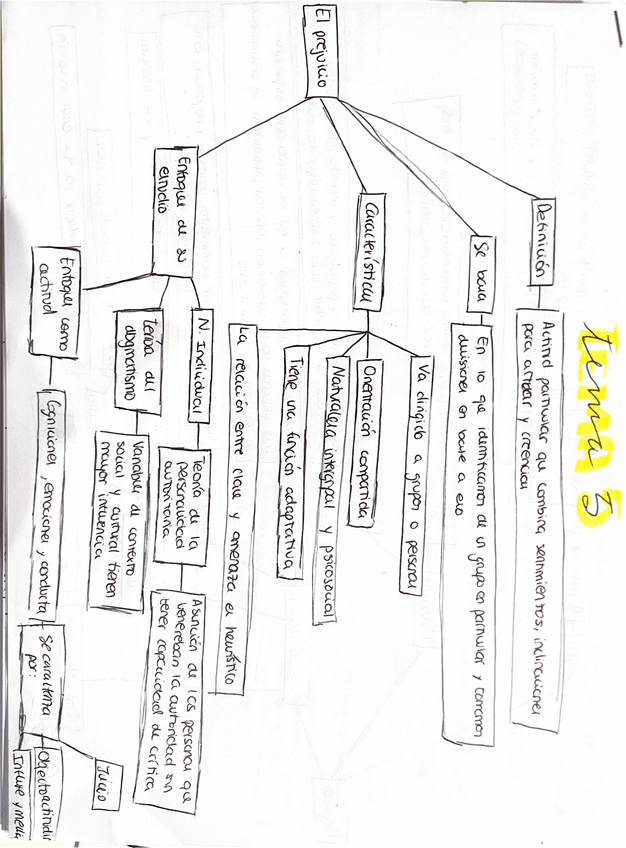 tema 5
El prejuicio
Definición
Actitud particular que combina sentimientos, inclinaciones
para actuar y creencias
Se basa
En lo que identificamos de un grupo en particular y tomamos
decisiones en base a eso
Características
Va dirigido a grupos o personas
Orientación compartida
Naturaleza intergrupal y psicosocial
Tiene una función adaptativa
La relación entre clase y amenaza es heurístico
Enfoques de su
estudio
N. Individual
Teoría de la
personalidad
autoritaria
Asunción de las personas que
venereban la autoridad sin
tener capacidad de crítica
teoría del
dogmatismo
Variables de contexto
social y cultural tienen
mayor influencia
Enfoques como
actitud
Cogniciones, emociones, y conducta
Se caracteriza
por:
Juicio
Objecto actitudin
Influye y media